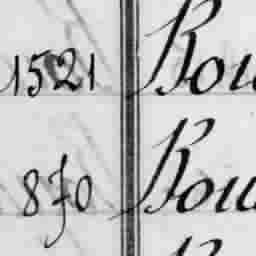 1521 Bou
870 Bou